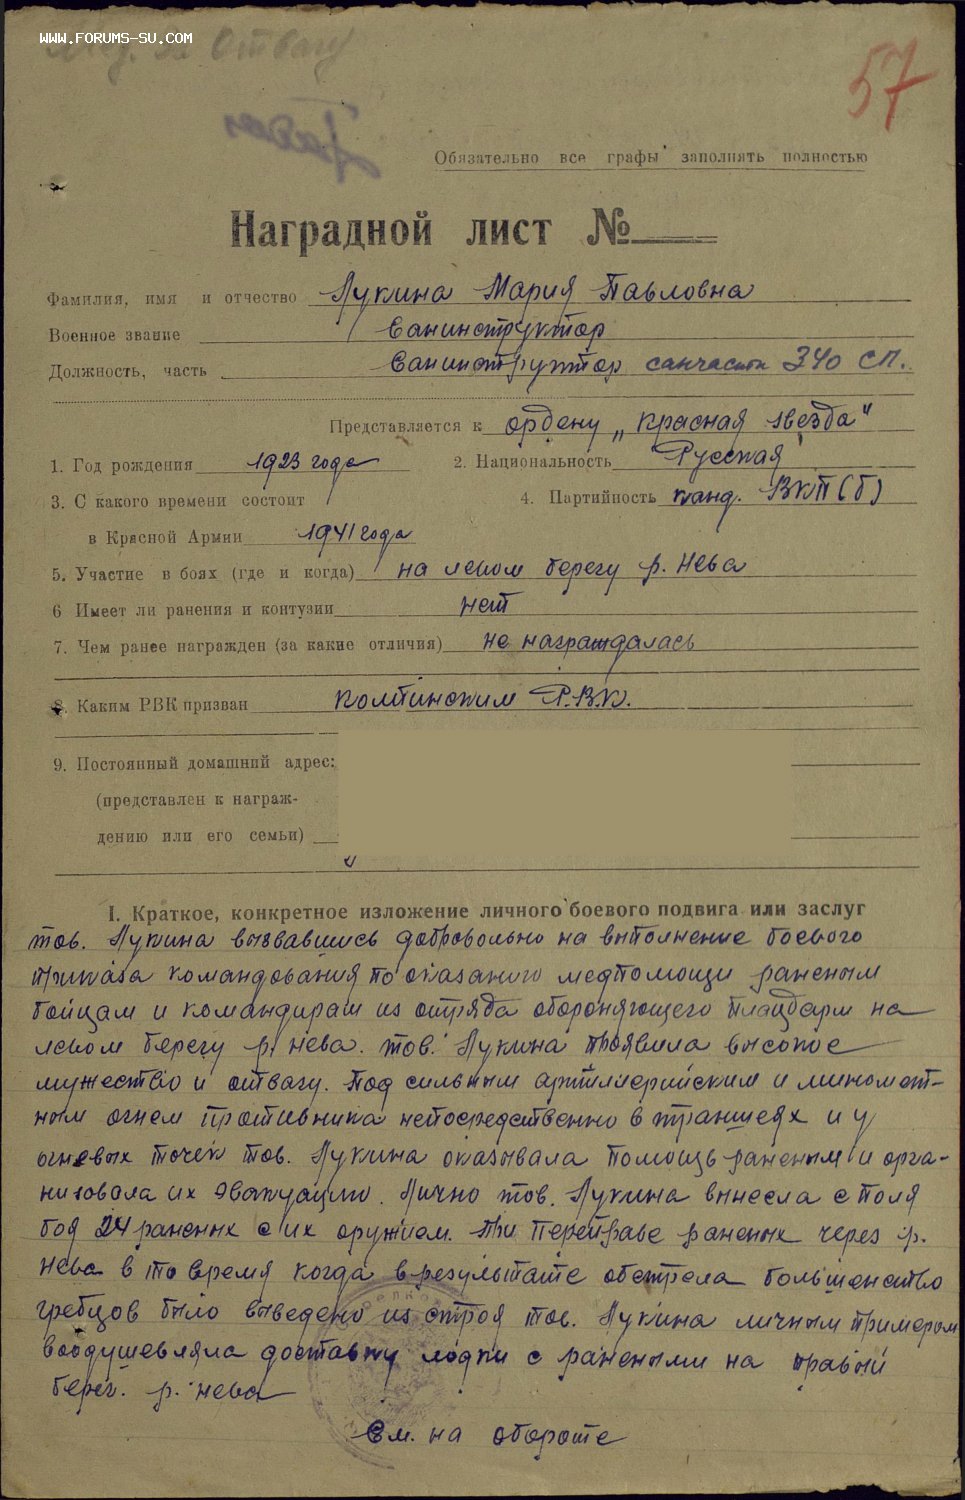 WWW.FORUMS-SU.COM
За Отвагу
57
Обязательно все графы заполнять полностью
Наградной лист №
Фамилия, имя и отчество Лукина Мария Павловна
Военное звание Санинструктор
Должность, часть Санинструктор санчасти 340 СП.
Представляется к ордену „Красная звезда"
1. Год рождения 1923 года 2. Национальность Русская
3. С какого времени состоит 4. Партийность канд. ВКП(б)
в Красной Армии 1941 года
5. Участие в боях (где и когда) на левом берегу р. Нева
6 Имеет ли ранения и контузии нет
7. Чем ранее награжден (за какие отличия) не награждалась
8. Каким РВК призван Колпинским Р.В.К.
9. Постоянный домашний адрес:
(представлен к награж-
дению или его семьи)
I. Краткое, конкретное изложение личного боевого подвига или заслуг
тов. Лукина вызвавшись добровольно на выполнение боевого
приказа командования по оказанию медпомощи раненым
бойцам и командирам из отряда обороняющего плацдарм на
левом берегу р. Нева. тов. Лукина проявила высокое
мужество и отвагу. Под сильным артиллерийским и миномет-
ным огнем противника непосредственно в траншеях и у
огневых точек тов. Лукина оказывала помощь раненым и орга-
низовала их эвакуацию. Лично тов. Лукина вынесла с поля
боя 24 раненых с их оружием. При переправе раненых через р.
Нева в то время когда в результате обстрела большенство
гребцов было выведено из строя тов. Лукина личным примером
воодушевляла доставку лодки с ранеными на правый
берег. р. Нева
См. на обороте